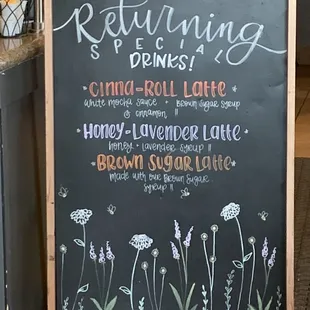 Returning
SPECIAL
DRINKS!
* CINNA-ROLL LATTE *
White mocha sauce + Brown Sugar Syrup
& cinnamon !!
* HONEY-LAVENDER LATTE *
honey + Lavender Syrup !!
* BROWN SUGAR LATTE *
Made with our Brown Sugar
Syrup !!